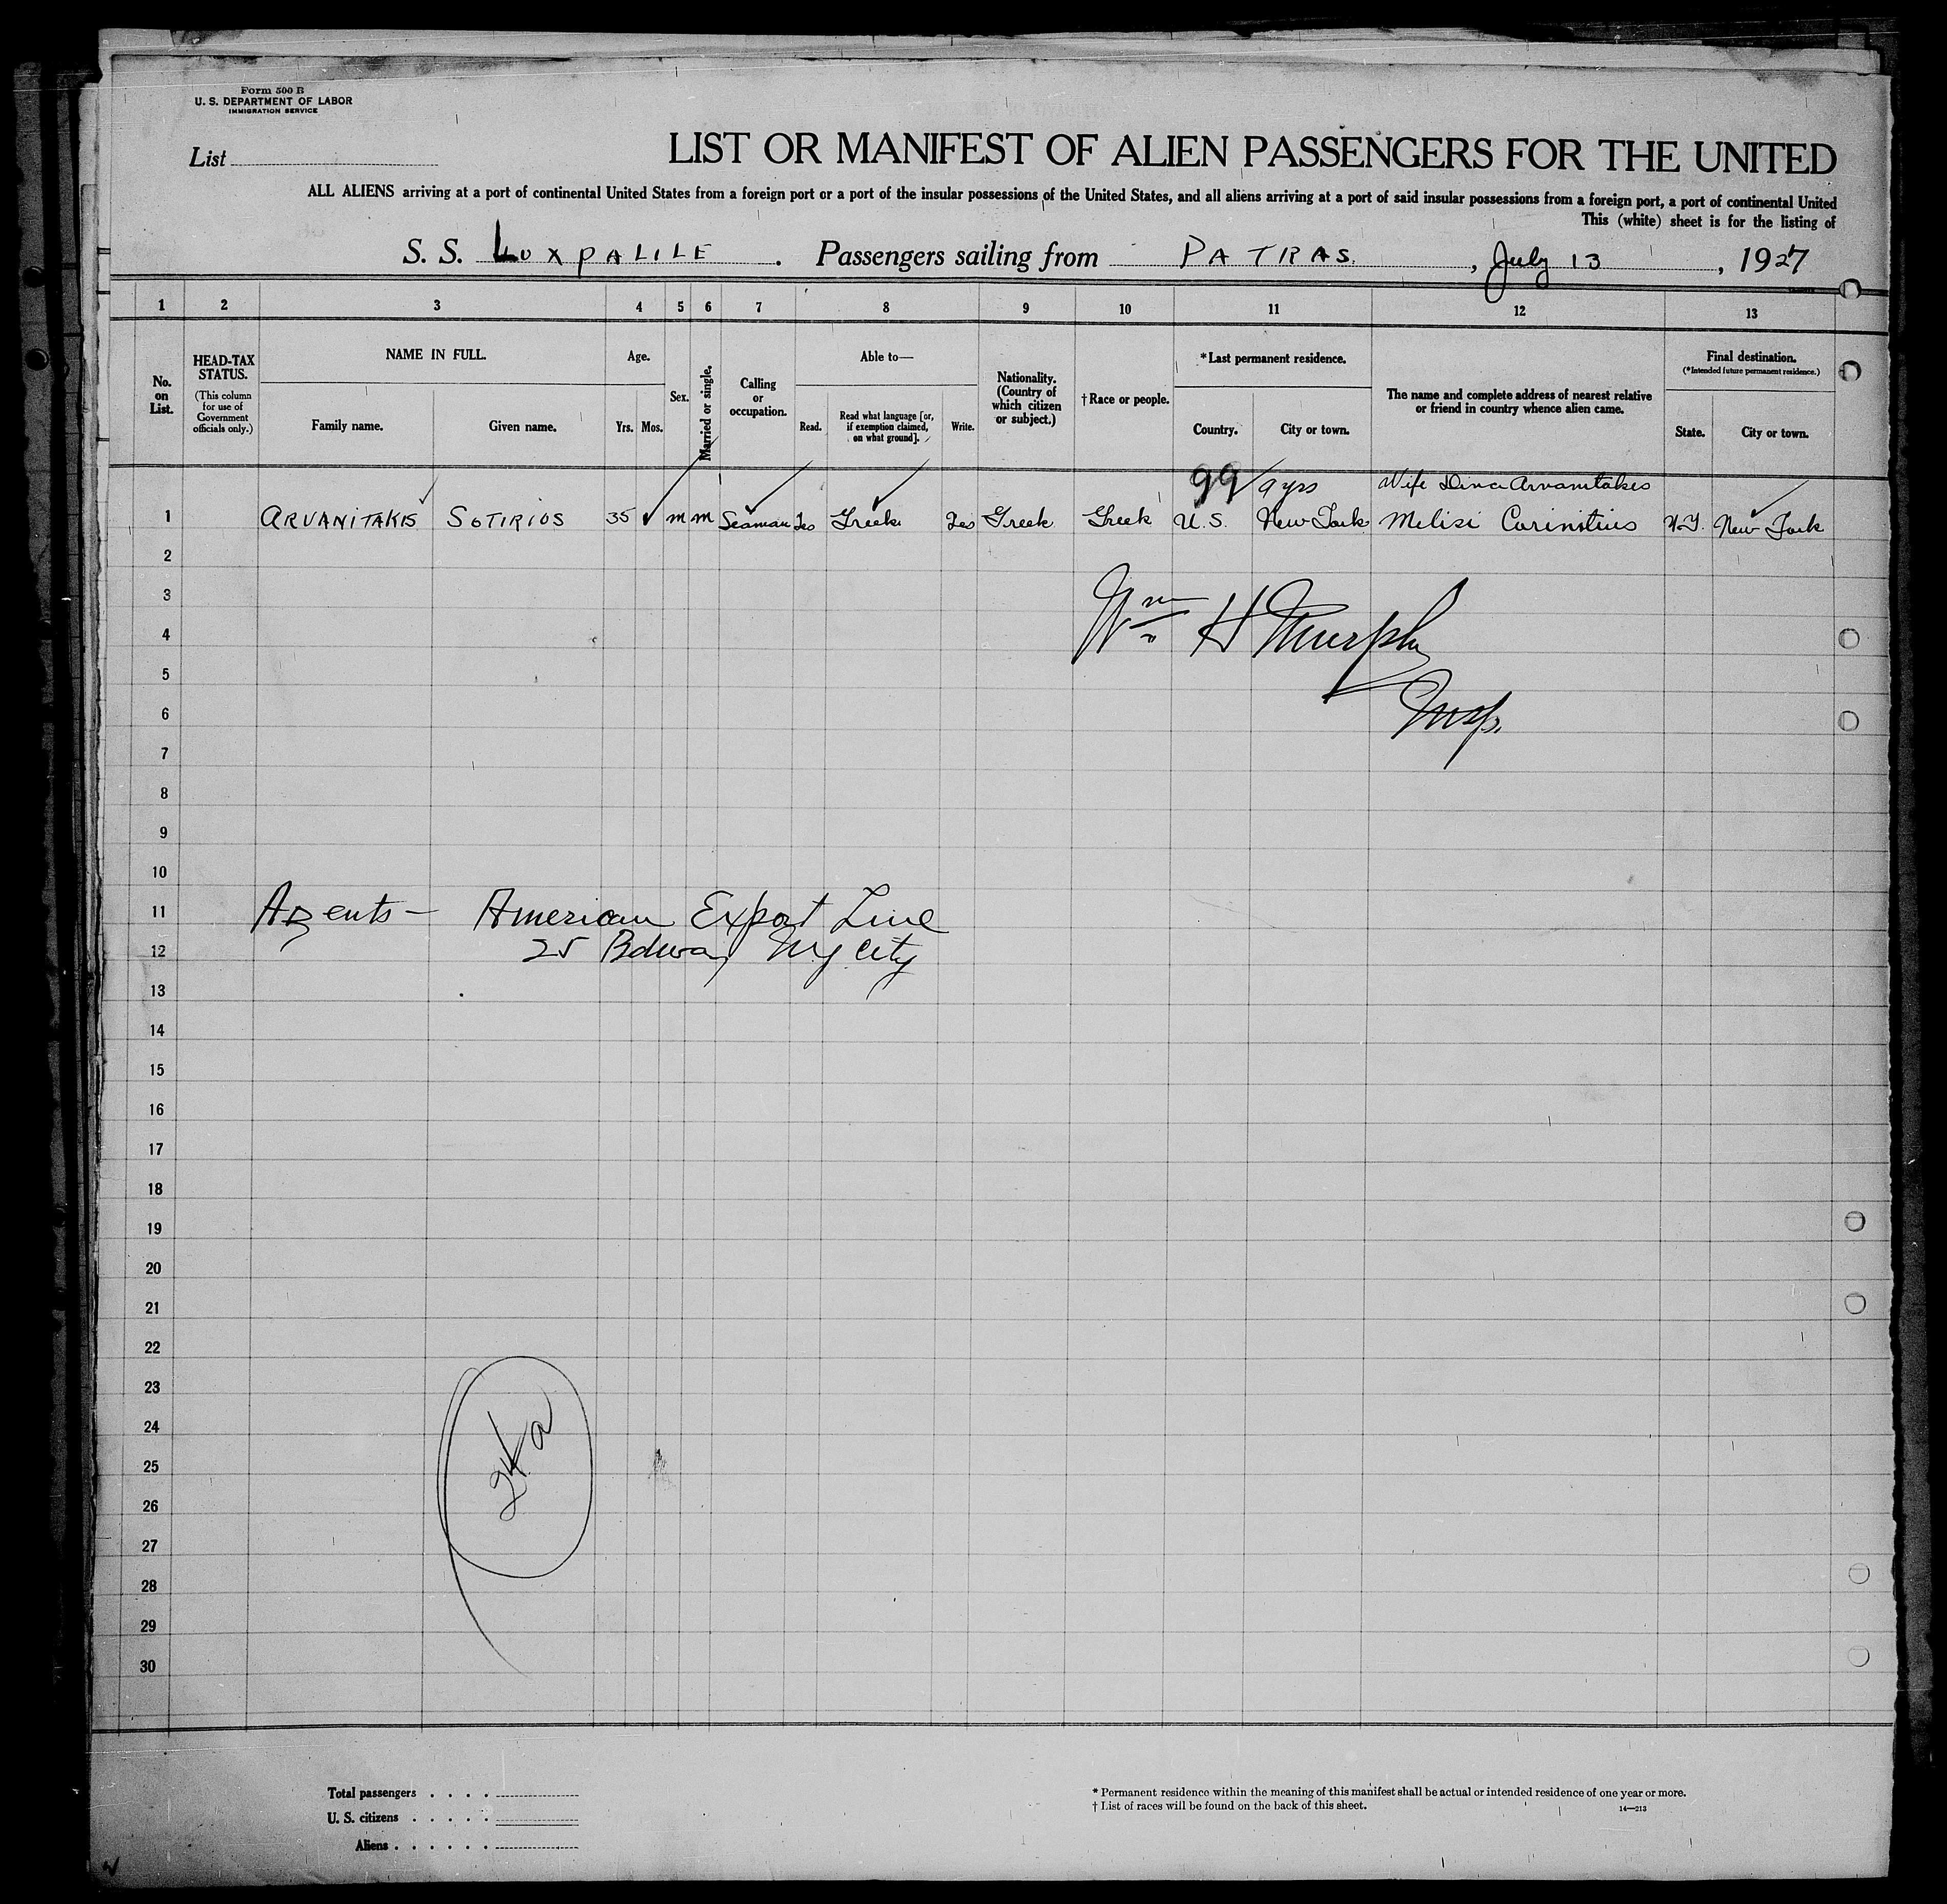 Form 500 B
U. S. DEPARTMENT OF LABOR
IMMIGRATION SERVICE
List
LIST OR MANIFEST OF ALIEN PASSENGERS FOR THE UNITED
ALL ALIENS arriving at a port of continental United States from a foreign port or a port of the insular possessions of the United States, and all aliens arriving at a port of said insular possessions from a foreign port, a port of continental United
This (white) sheet is for the listing of
S. S. LUXPALILE . Passengers sailing from PATRAS. , July 13 , 1927
1 2 3 4 5 6 7 8 9 10 11 12 13
No. on List.
HEAD-TAX STATUS.
(This column for use of Government officials only.)
NAME IN FULL.
Family name. Given name.
Age.
Yrs. Mos.
Sex.
Married or single.
Calling or occupation.
Able to—
Read. Read what language [or, if exemption claimed, on what ground]. Write.
Nationality. (Country of which citizen or subject.)
†Race or people.
*Last permanent residence.
Country. City or town.
The name and complete address of nearest relative or friend in country whence alien came.
Final destination.
(*Intended future permanent residence.)
State. City or town.
99 9 yrs Wife Dina Arvanitakis
1 ARVANITAKIS SOTIRIOS 35 m m Seaman Yes Greek Yes Greek Greek U.S. New York Melisi Corinitius N.Y. New York
2
3
Wm H Murphy
4
5
6
Insp.
7
8
9
10
11 Agents - American Export Line
12 25 Bdway NY City
13
14
15
16
17
18
19
20
21
22
23
24
24a
25
26
27
28
29
30
Total passengers . . . .
U. S. citizens . . . . .
Aliens . . . . . .
* Permanent residence within the meaning of this manifest shall be actual or intended residence of one year or more.
† List of races will be found on the back of this sheet.
14—213